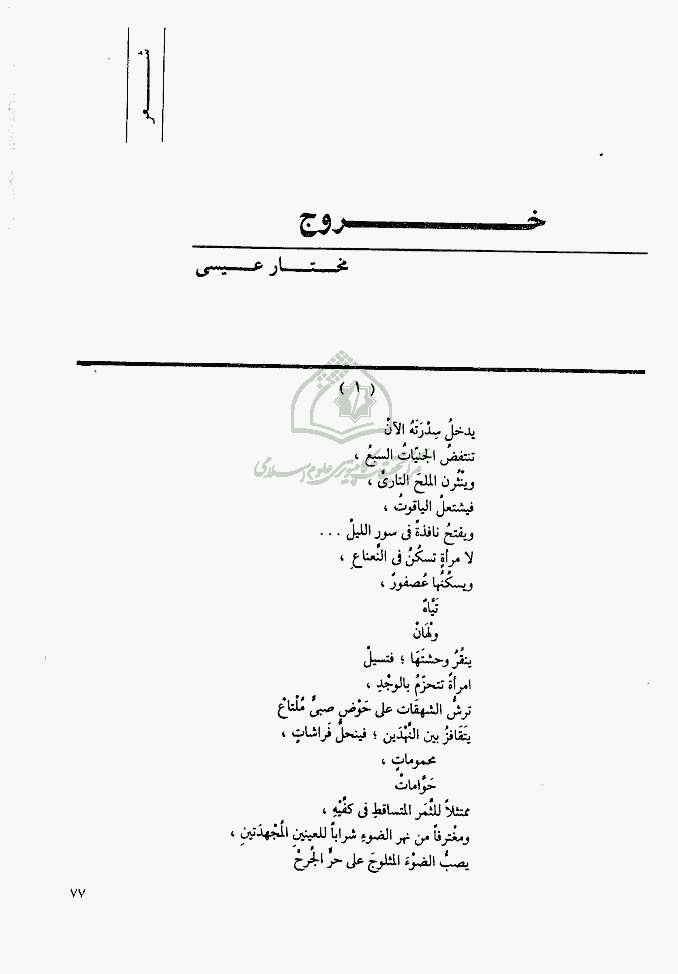 شـــعر
خـــــــروج
مخـتـــار عـيـسى
( ١ )
يدخلُ سِدْرَتَهُ الآنْ
تنتفضُ الجنيّاتُ السبعُ ،
وينْثُرن الملحَ النارىَّ ،
فيشتعلُ الياقوتُ ،
ويفتحُ نافذةً فى سورِ الليلْ ...
لا مرأةٍ تسكُنُ فى النَّعناعِ ،
ويسكُنُها عُصفورٌ ،
تَيَّاهٌ
ولْهَانْ
ينقُرُ وحشتَهَا ؛ فتسيلْ
امرأةً تتحزّمُ بالوجْدِ ،
ترشُّ الشهقَات على حَوْضِ صبىٍّ مُلْتاعْ
يتَقافزُ بين النَّهْدَين ؛ فينحلُّ فَراشاتٍ ،
محموماتٍ ،
حَوَّاماتْ
ممتثلاً للثَّمَر المتساقطِ فى كفَّيْهِ ،
ومغْترفاً من نهر الضوءِ شراباً للعينينِ الْمُجْهدَتينِ ،
يصبُّ الضوْءَ المثلوجَ على حرِّ الجُرحْ
٧٧
مركز تحقيقات كامپيوتری علوم اسلامی